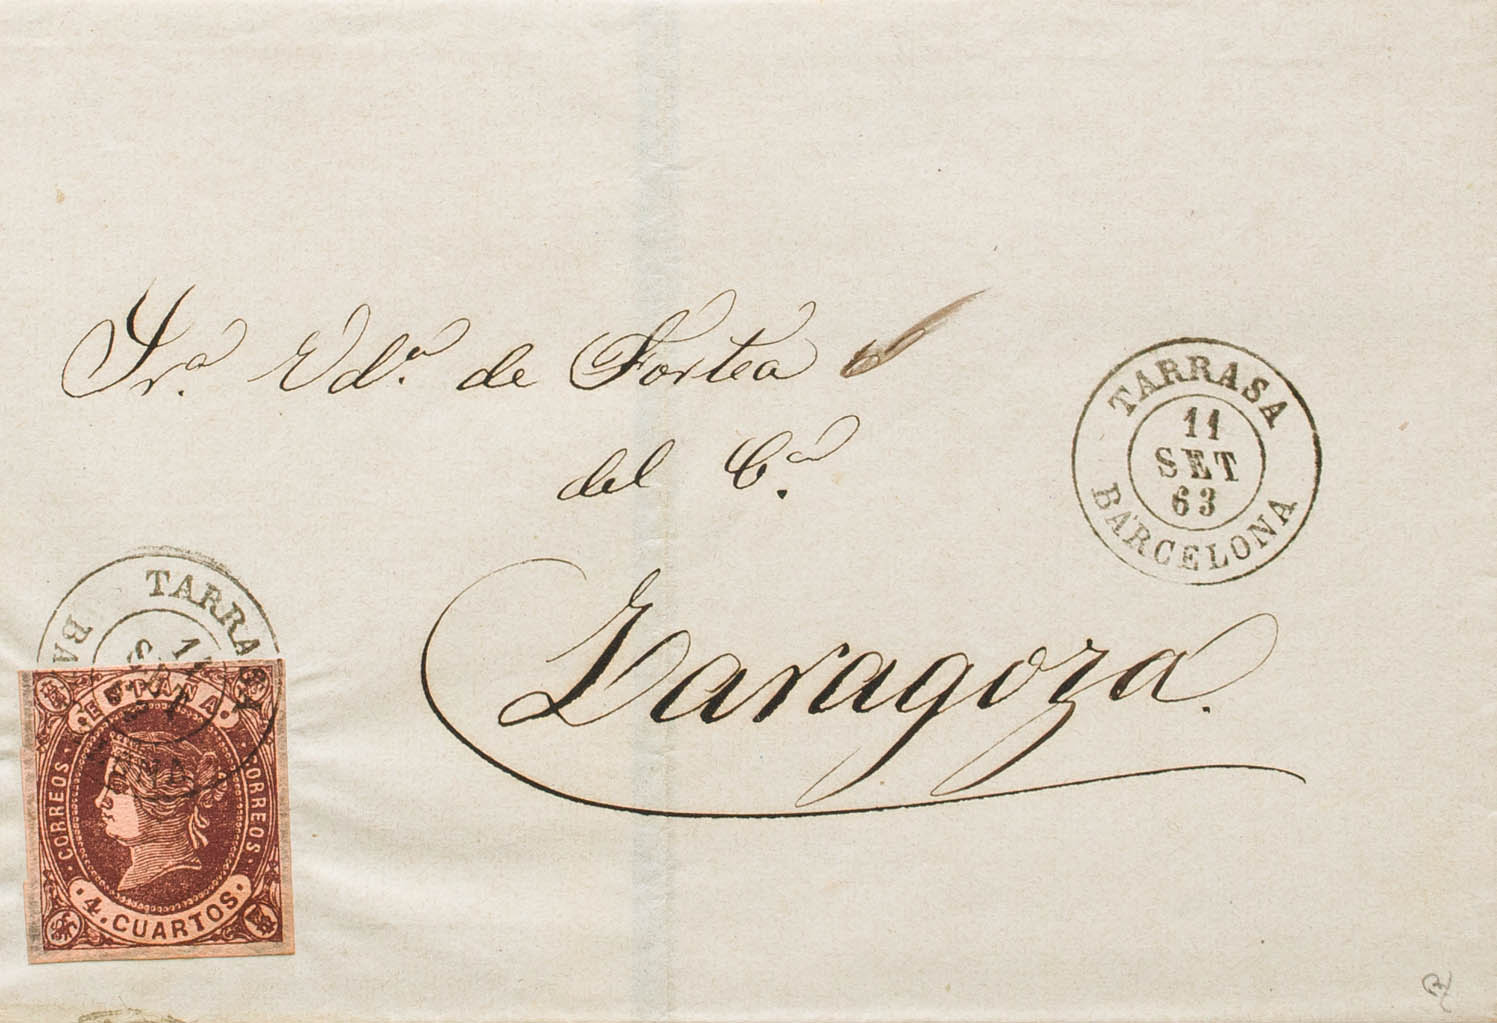 Sra. Vda. de Fortea
del Co.
Zaragoza.
TARRASA
11
SET
63
BARCELONA
TARRASA
11
SET
ESPAÑA
CORREOS
CORREOS
4. CUARTOS